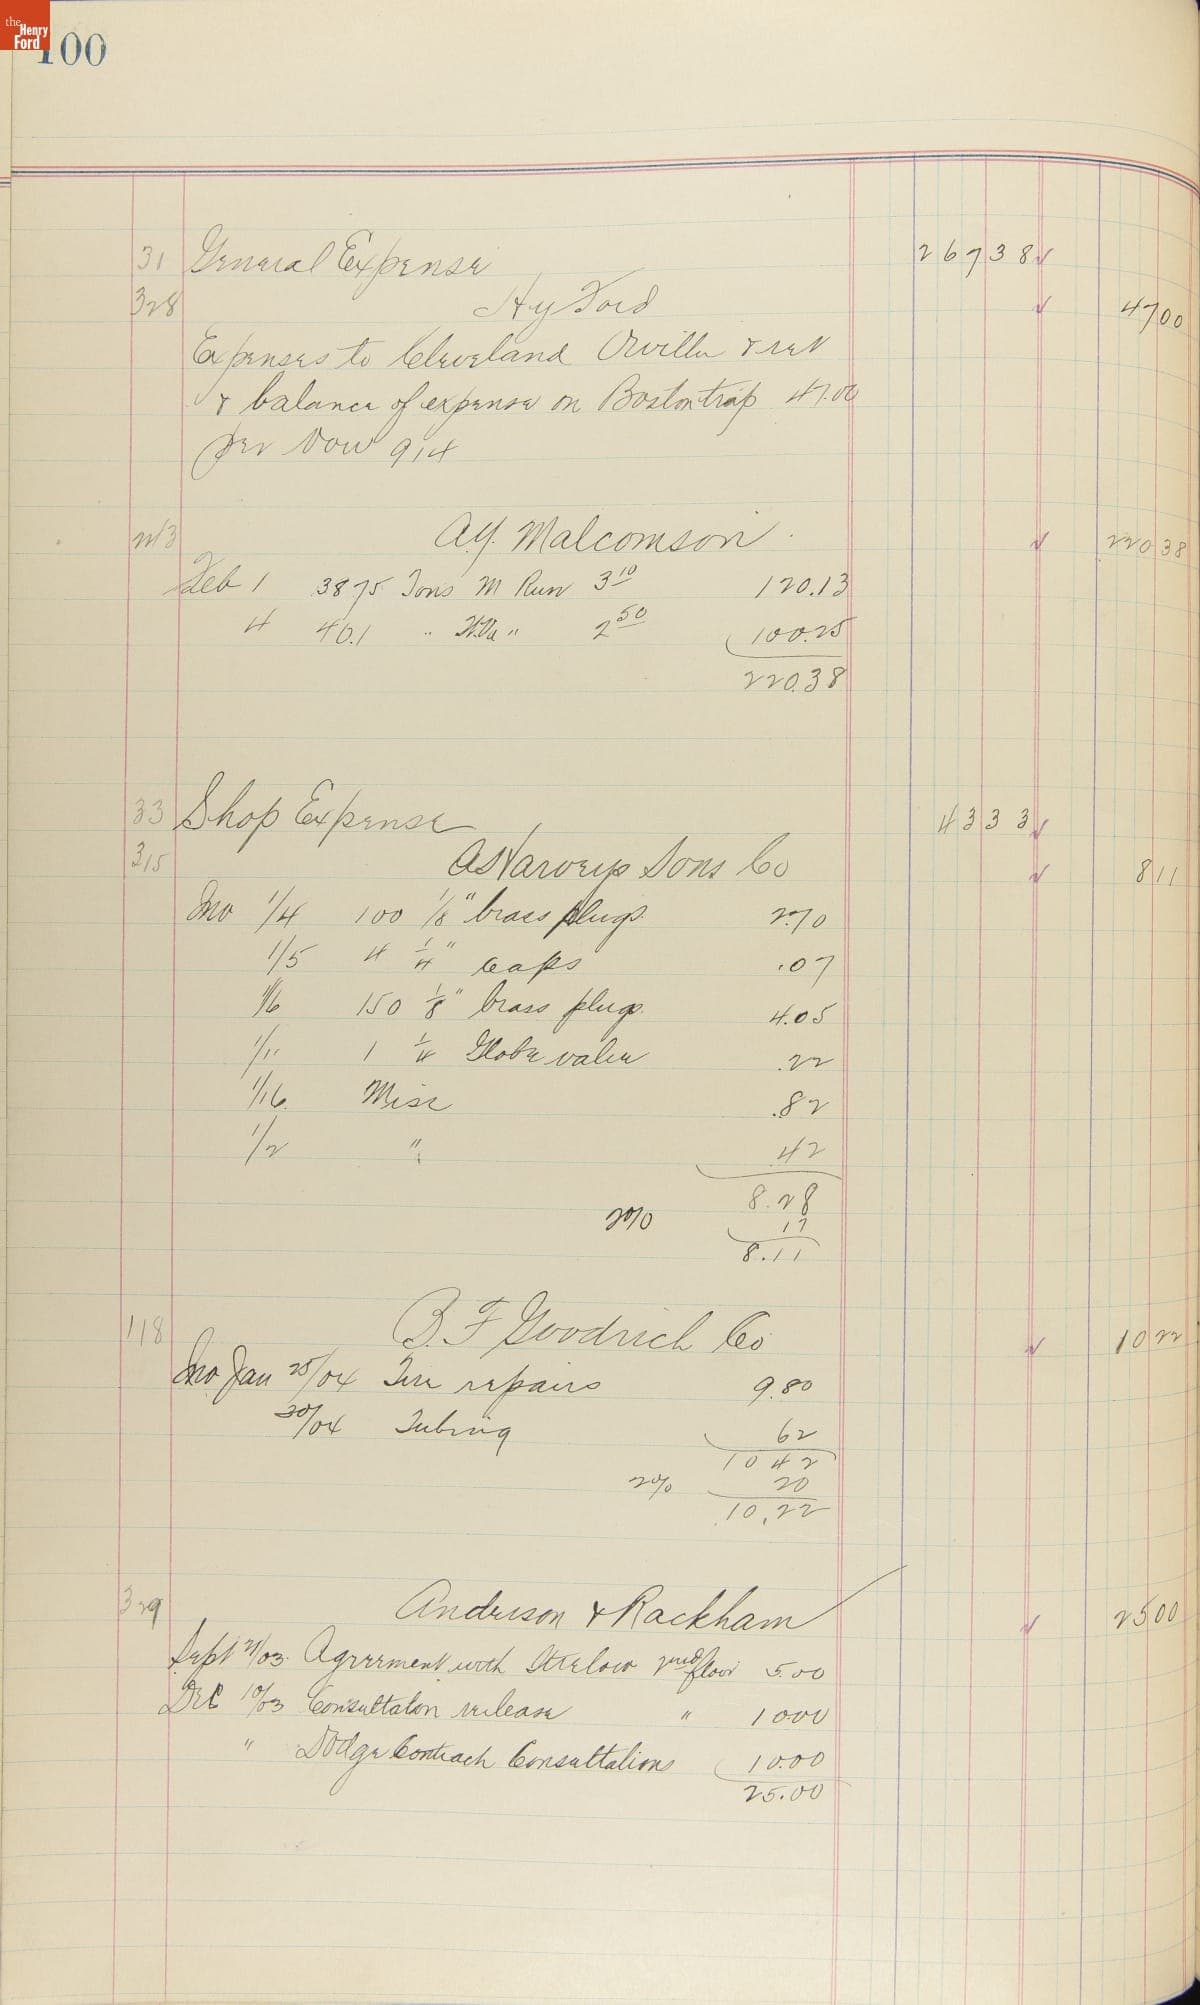 the Henry Ford
100
31 General Expense 267 38 ✓
328 Hy Ford ✓ 47 00
Expenses to Cleveland Orvilla & ret
& balance of expense on Boston trip 47.00
per Vou 914
213 A.Y. Malcomson ✓ 220 38
Feb 1 38 75 Tons M Run 3 10 120.13
4 40.1 " W.Va " 2 50 100.25
220.38
33 Shop Expense 43 33 ✓
315 A Harveys Sons Co ✓ 8 11
Inv 1/4 100 1/8" brass plugs 2.70
1/5 4 1/4" caps .07
1/6 150 1/8" brass plugs 4.05
1/11 1 1/4 Globe valve .22
1/16 Misc .82
1/2 " .42
8.28
2% 17
8.11
118 B.F Goodrich Co ✓ 10 22
Inv Jan 25/04 Tire repairs 9.80
30/04 Tubing 62
10 42
2% 20
10.22
329 Anderson & Rackham ✓ 25 00
Sept 21/03 Agreement with Strelow 2nd floor 5.00
Dec 10/03 Consultaton release " 10.00
" Dodge Contract Consultations 10.00
25.00